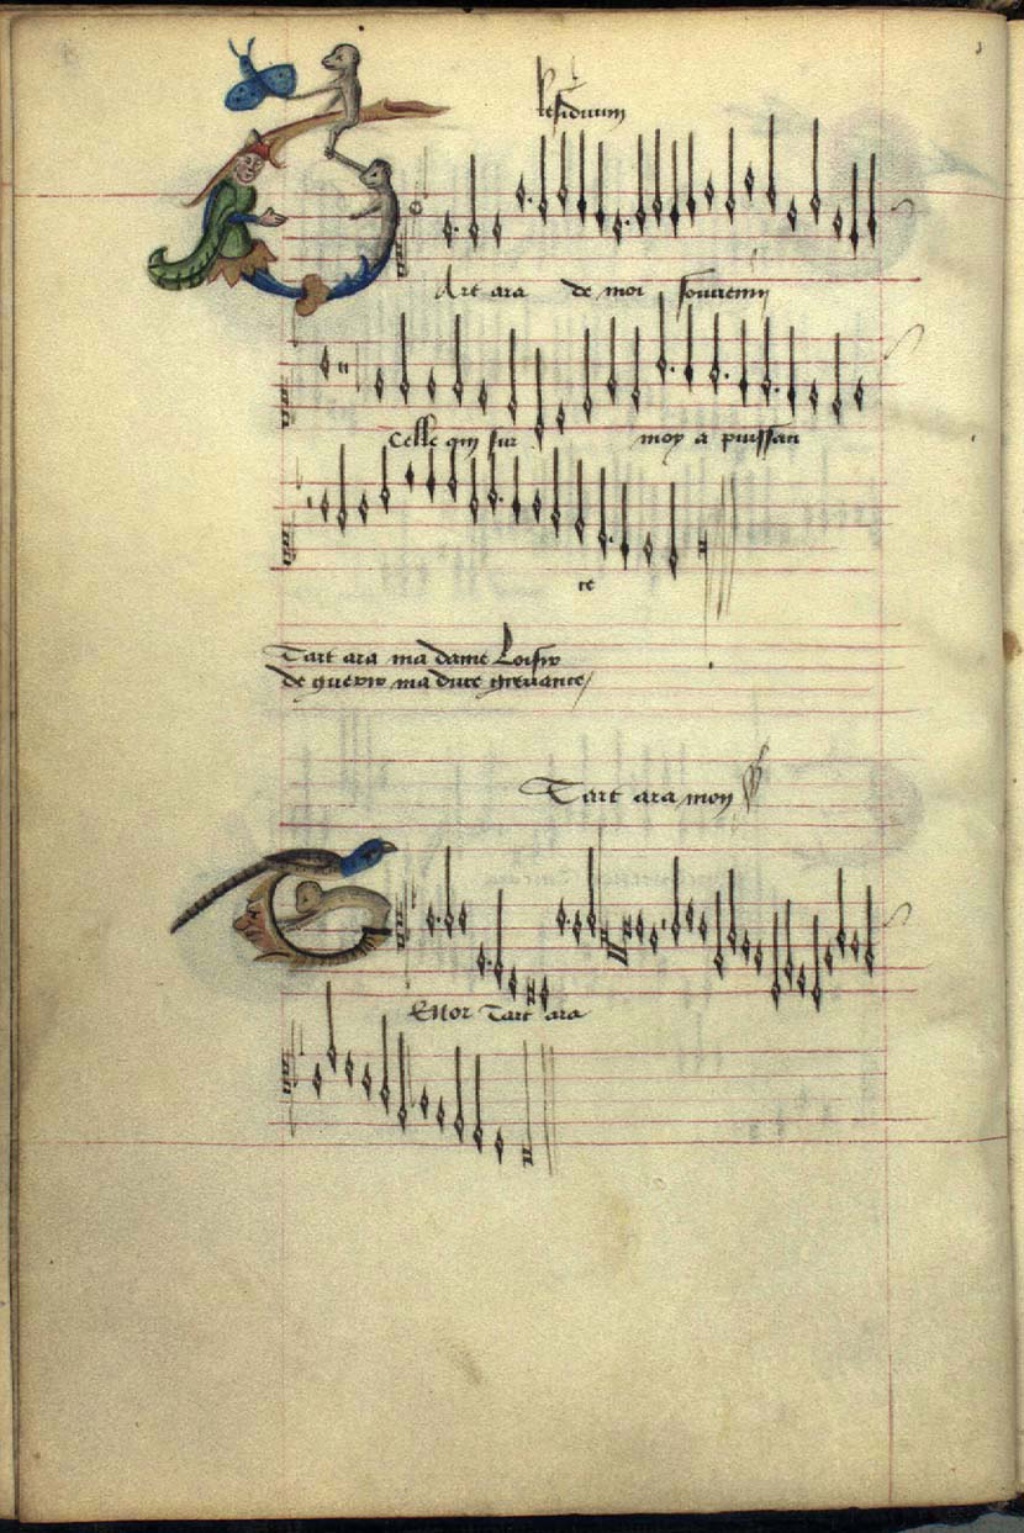 Residuum
Art ara de moi souvenir
Celle qui sur moy a puissan
ce
Tart ara ma dame Loisir
de guerir ma dure grevance
Tart ara mon
Enor Tart ara